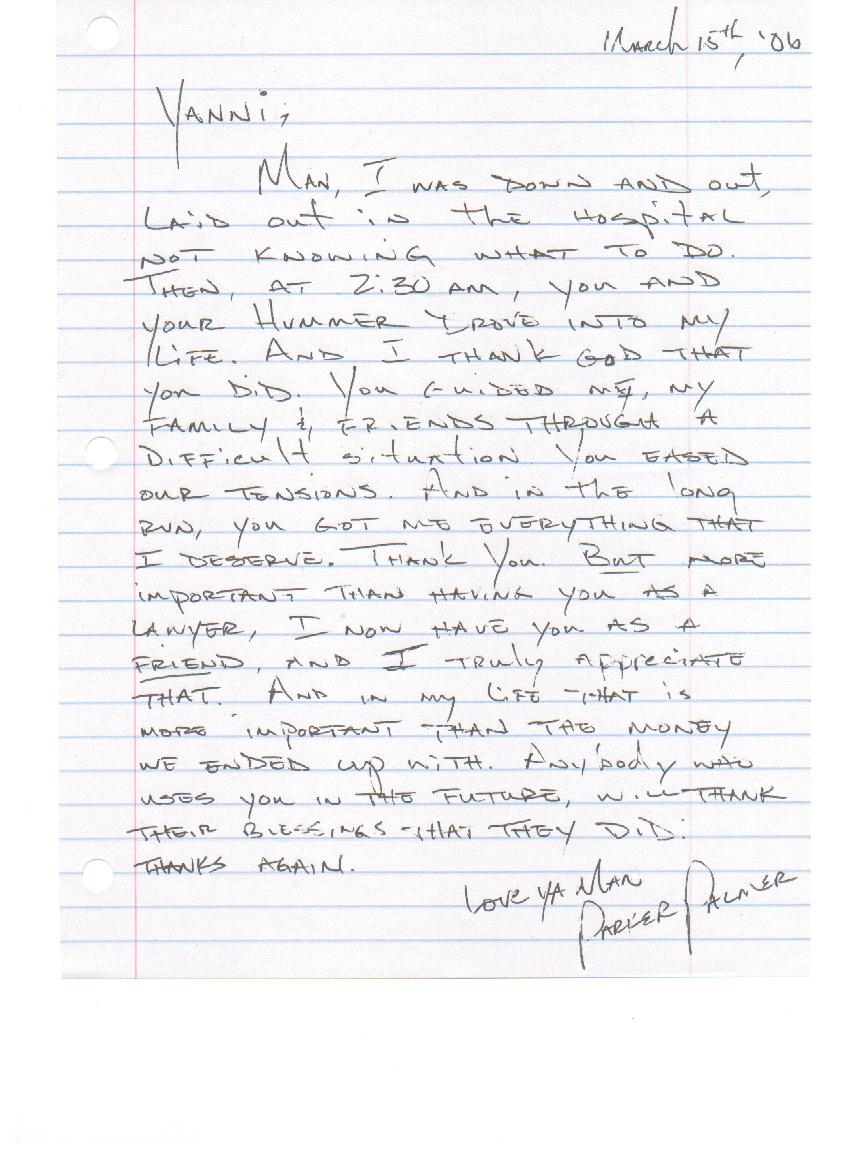 March 15th, '06
Yanni,
Man, I was down and out,
laid out in the hospital
not knowing what to do.
Then, at 2:30 am, you and
your Hummer drove into my
life. And I thank God that
you did. You guided me, my
family & friends through a
difficult situation. You eased
our tensions. And in the long
run, you got me everything that
I deserve. Thank you. But more
important than having you as a
lawyer, I now have you as a
friend, and I truly appreciate
that. And in my life that is
more important than the money
we ended up with. Anybody who
uses you in the future, will thank
their blessings that they did.
Thanks again.
Love ya man
Parker Palmer